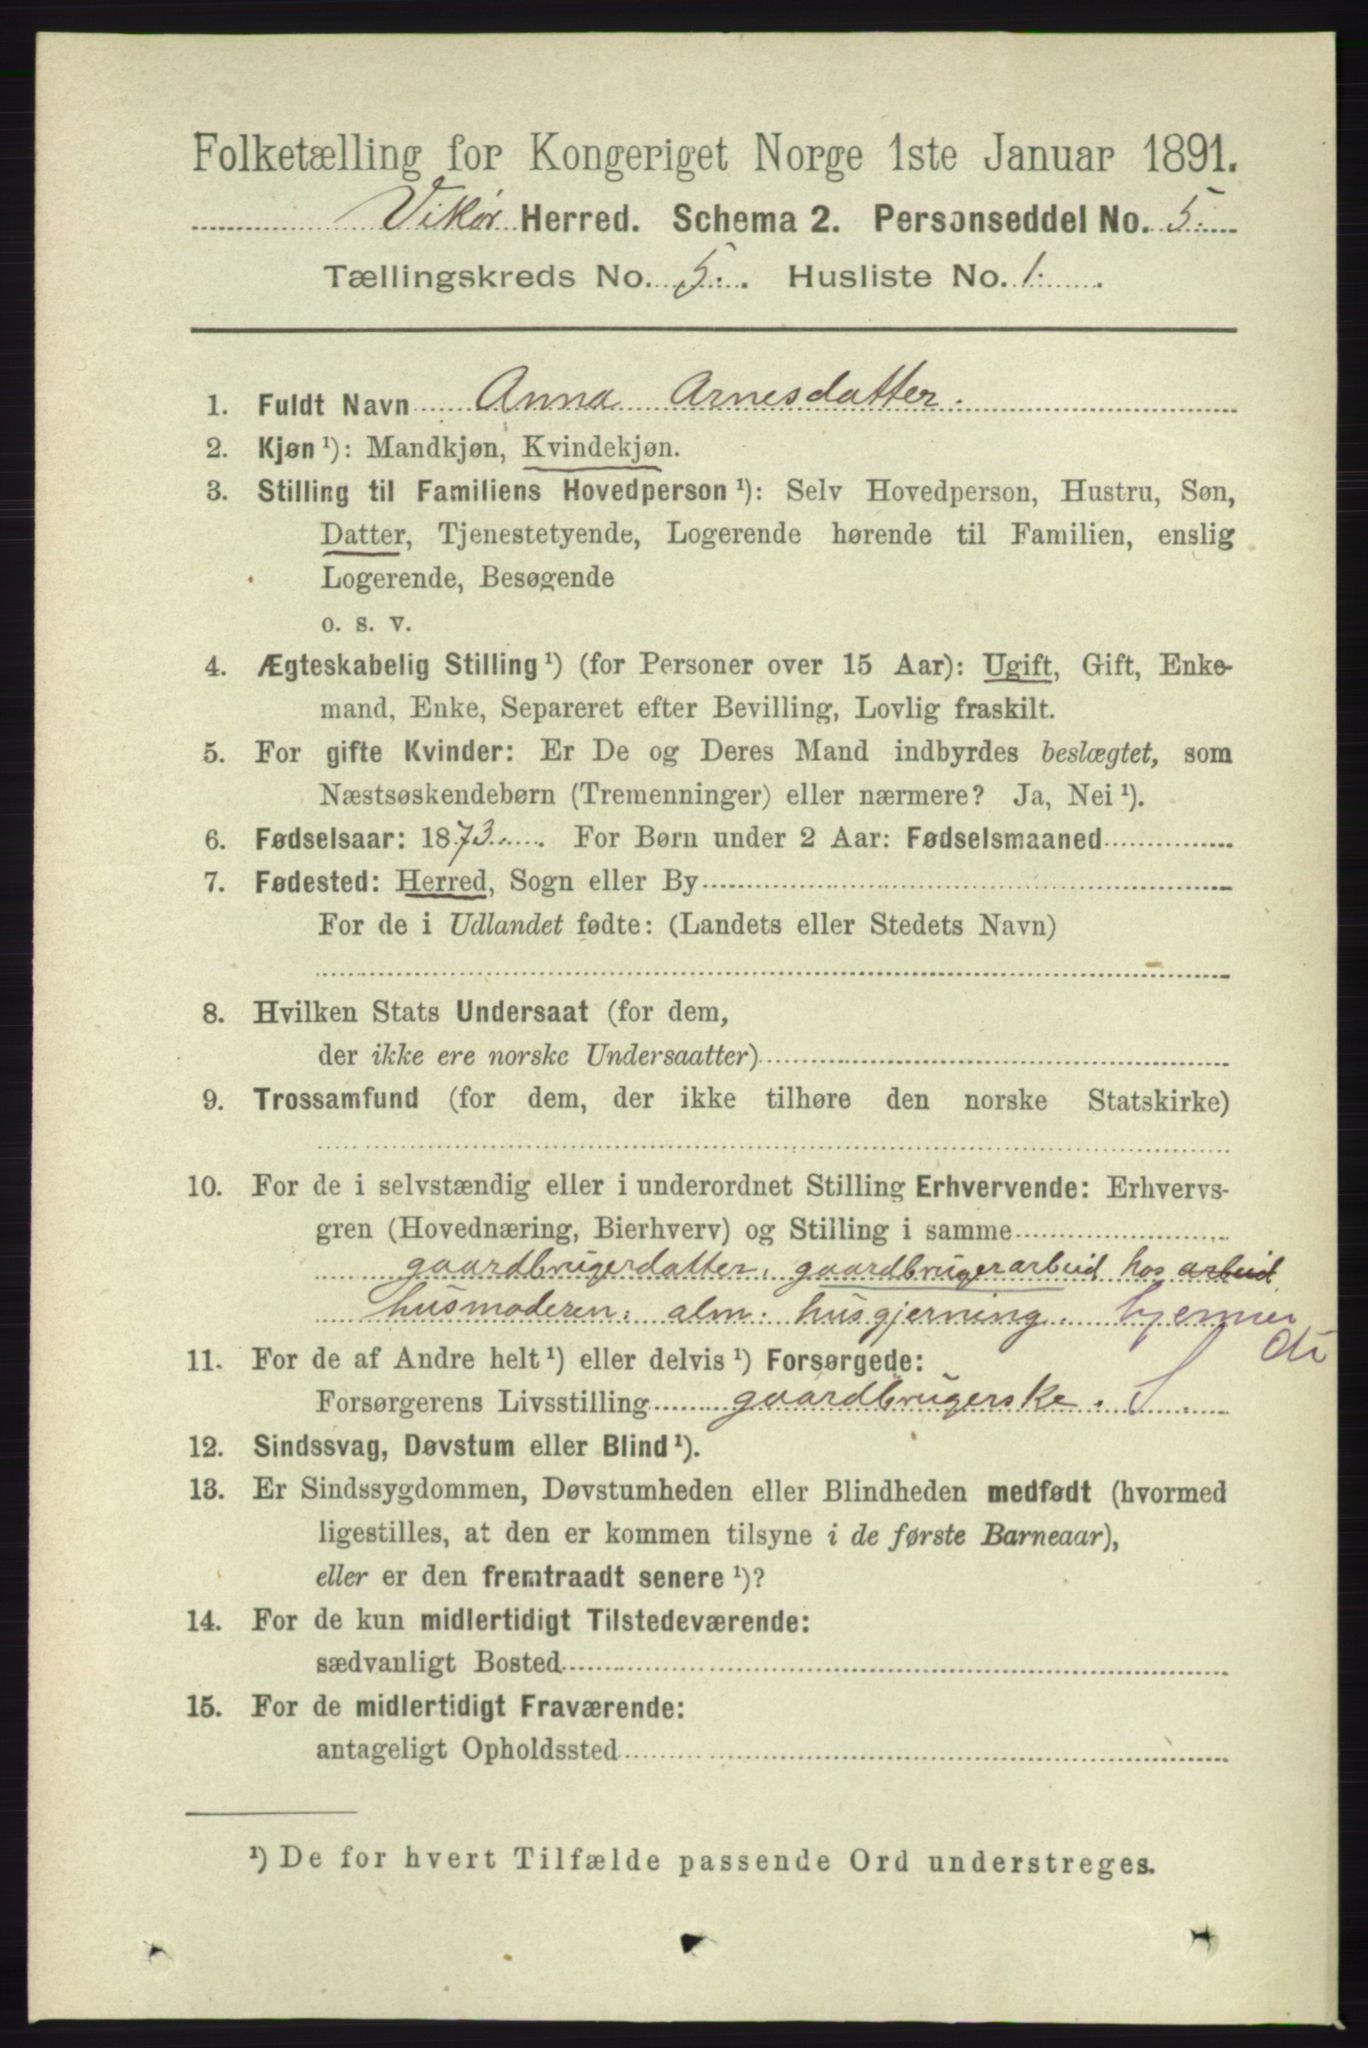 Folketælling for Kongeriget Norge 1ste Januar 1891.
Vikør Herred. Schema 2. Personseddel No. 5.
Tællingskreds No. 5. Husliste No. 1.
1. Fuldt Navn Anna Arnesdatter.
2. Kjøn¹): Mandkjøn, Kvindekjøn.
3. Stilling til Familiens Hovedperson¹): Selv Hovedperson, Hustru, Søn,
Datter, Tjenestetyende, Logerende hørende til Familien, enslig
Logerende, Besøgende
o. s. v.
4. Ægteskabelig Stilling¹) (for Personer over 15 Aar): Ugift, Gift, Enke-
mand, Enke, Separeret efter Bevilling, Lovlig fraskilt.
5. For gifte Kvinder: Er De og Deres Mand indbyrdes beslægtet, som
Næstsøskendebørn (Tremenninger) eller nærmere? Ja, Nei¹).
6. Fødselsaar: 1873. For Børn under 2 Aar: Fødselsmaaned
7. Fødested: Herred, Sogn eller By
For de i Udlandet fødte: (Landets eller Stedets Navn)
8. Hvilken Stats Undersaat (for dem,
der ikke ere norske Undersaatter)
9. Trossamfund (for dem, der ikke tilhøre den norske Statskirke)
10. For de i selvstændig eller i underordnet Stilling Erhvervende: Erhvervs-
gren (Hovednæring, Bierhverv) og Stilling i samme
gaardbrugerdatter, gaardbrugerarbeid hos arbeid
husmoderen: alm. husgjerning. hjemme
di
11. For de af Andre helt¹) eller delvis¹) Forsørgede:
Forsørgerens Livsstilling gaardbrugerske. S
12. Sindssvag, Døvstum eller Blind¹).
13. Er Sindssygdommen, Døvstumheden eller Blindheden medfødt (hvormed
ligestilles, at den er kommen tilsyne i de første Barneaar),
eller er den fremtraadt senere¹)?
14. For de kun midlertidigt Tilstedeværende:
sædvanligt Bosted
15. For de midlertidigt Fraværende:
antageligt Opholdssted
¹) De for hvert Tilfælde passende Ord understreges.